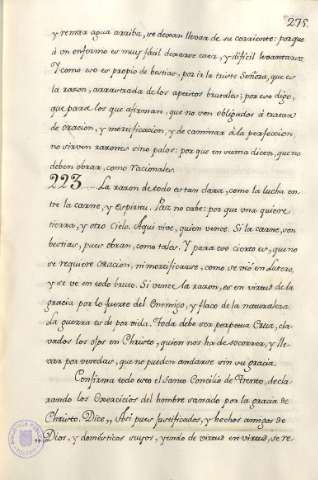 275.
y remar agua arriba, se dexan llevar de su corriente: porque
à un enfermo es muy facil dexarse caer, y dificil levantarse.
Y como eso es propio de bestias, por ir la triste Señora, que es
la razon, arrastrada de los apetitos brutales; por eso digo,
que para los que afirman, que no son obligados à tratar
de oracion, y mortificacion, y de caminar à la perfeccion,
no sirven razones sino palos: por que en suma dicen, que no
deben obrar, como Racionales.
223. La razon de todo es tan clara, como la lucha en
tre la carne, y espiritu. Paz no cabe: por que una quiere
tierra, y otro Cielo. Aqui vive, quien vence. Si la carne, son
bestias, pues obran, como tales. Y para eso cierto es, que no
se requiere oracion, ni mortificarse, como se vió en Lutero,
y se ve en todo bruto. Si vence la razon, es en virtud de la
gracia por lo fuerte del Enemigo, y flaco de la naturaleza.
La guerra es de por vida. Toda debe ser perpetua Cruz, cla-
vados los ojos en Christo, quien nos ha de socorrer, y lle-
var por veredas, que no pueden andarse sin su gracia.
Confirma todo eso el Santo Concilio de Trento, decla
rando los Exercicios del hombre sanado por la gracia de
Christo. Dice,, Asi pues justificados, y hechos amigos de
,, Dios, y domesticos suyos, yendo de virtud en virtud, se re-